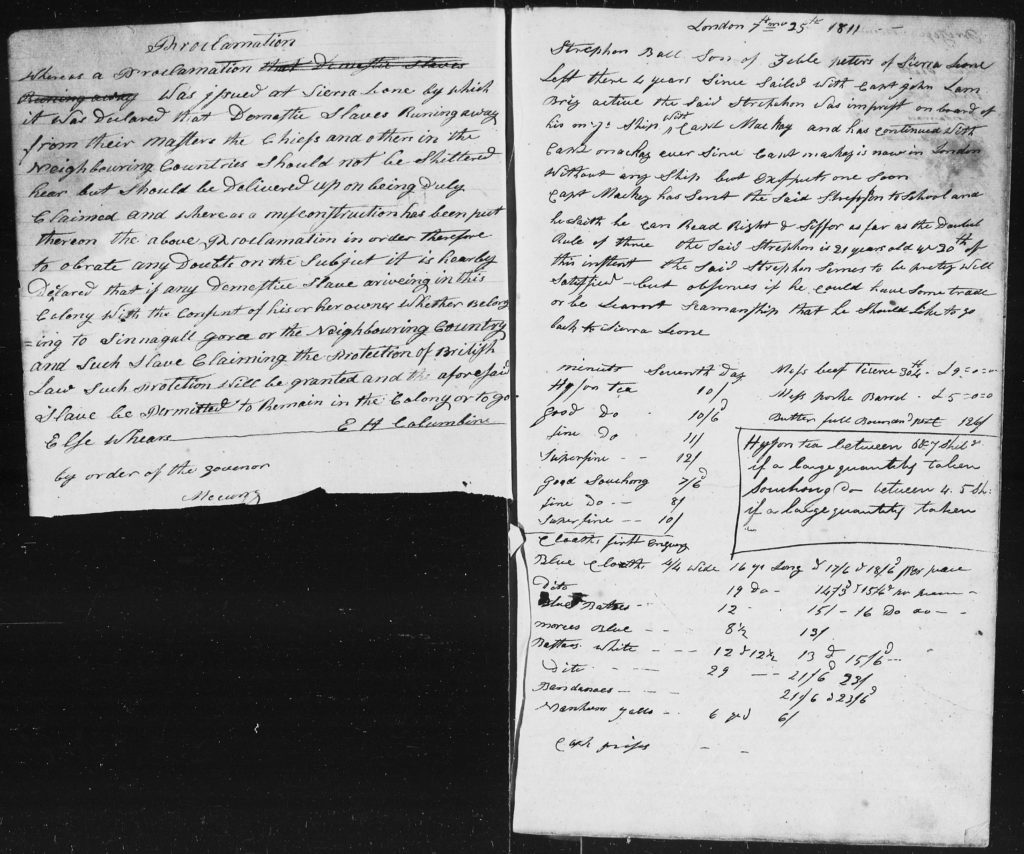 Proclamation
Whereas a Proclamation that Domestic Slaves
Runing away Was issued at Sierra Leone by which
it Was Declared that Domestic Slaves Runing away
from their Masters the Chiefs and others in the
Neighbouring Countries Should not be Sheltered
hear but Should be Delivered up on being Duly
Claimed and whereas a misconstruction has been put
thereon the above Proclamation in order therefore
to obrate any Doubts on the Subject it is hearby
Declared that if any Domestice Slave ariveing in this
Colony With the Consent of his or her owner Whether Belong
=ing to Sinnagall Goree or the Neighbouring Country
and Such Slave Claiming the Protection of British
Law Such Protection Will be granted and the aforesaid
Slave be Permitted to Remain in the Colony or to go
Else Whears E H Columbine
by order of the govenor
London 7th mo 25th 1811
Strephon Ball Son of Zeble peters of Sierra Leone
Left there 4 years Since Sailed with Capt John Lam
Brig active the Said Strephon Was imprest on board of
his Ship With Capt Mackay and has Continued With
Capt mackay ever Since Capt mackay is now in London
Without any Ship but Expects one Soon
Capt Mackey has Sent the Said Strephon to School and
he Saith he Can Read Right & Siffor as far as the Doubel
Rule of three the Said Strephon is 21 years old the 30th of
this instent the Said Strephon Simes to be pretey Well
Satisfied - but observes if he Could have Some trade
or be Learnt Seamanship that he Should Like to go
back to Sierra Leone
minuts Seventh Day
Hyson tea 10/
good Do 10/6
fine Do 11/
Superfine - - 12/
good Souchong 7/6
fine Do - - 8/
Superfine - - 10/
Mess beef Tierce 304 £9=0=0
Mess porke Barrel - £5=0=0
Butter full 126/
Hyson tea between 6 & 7 Shils
if a large quantity taken
Souchong Do between 4. 5 Sh:
if a large quantity taken
Cloaths first
Blue Cloath 4/4 Wide 16 yds Long 17/6 & 18/6 per peace
Dito 19 Do - 14/3 & 15/6
Blue Baftas - 12 - 15/ - 16 Do Do - -
morees Blue - - 8½ 13/
Baftars White - - - 12 & 12½ 13 & 15/6 -
Dito - - - - 29 - - 21/6 & 23/
Bandanoes - - - - 21/6 & 23/6
6 yds 6/
Cash prises - -